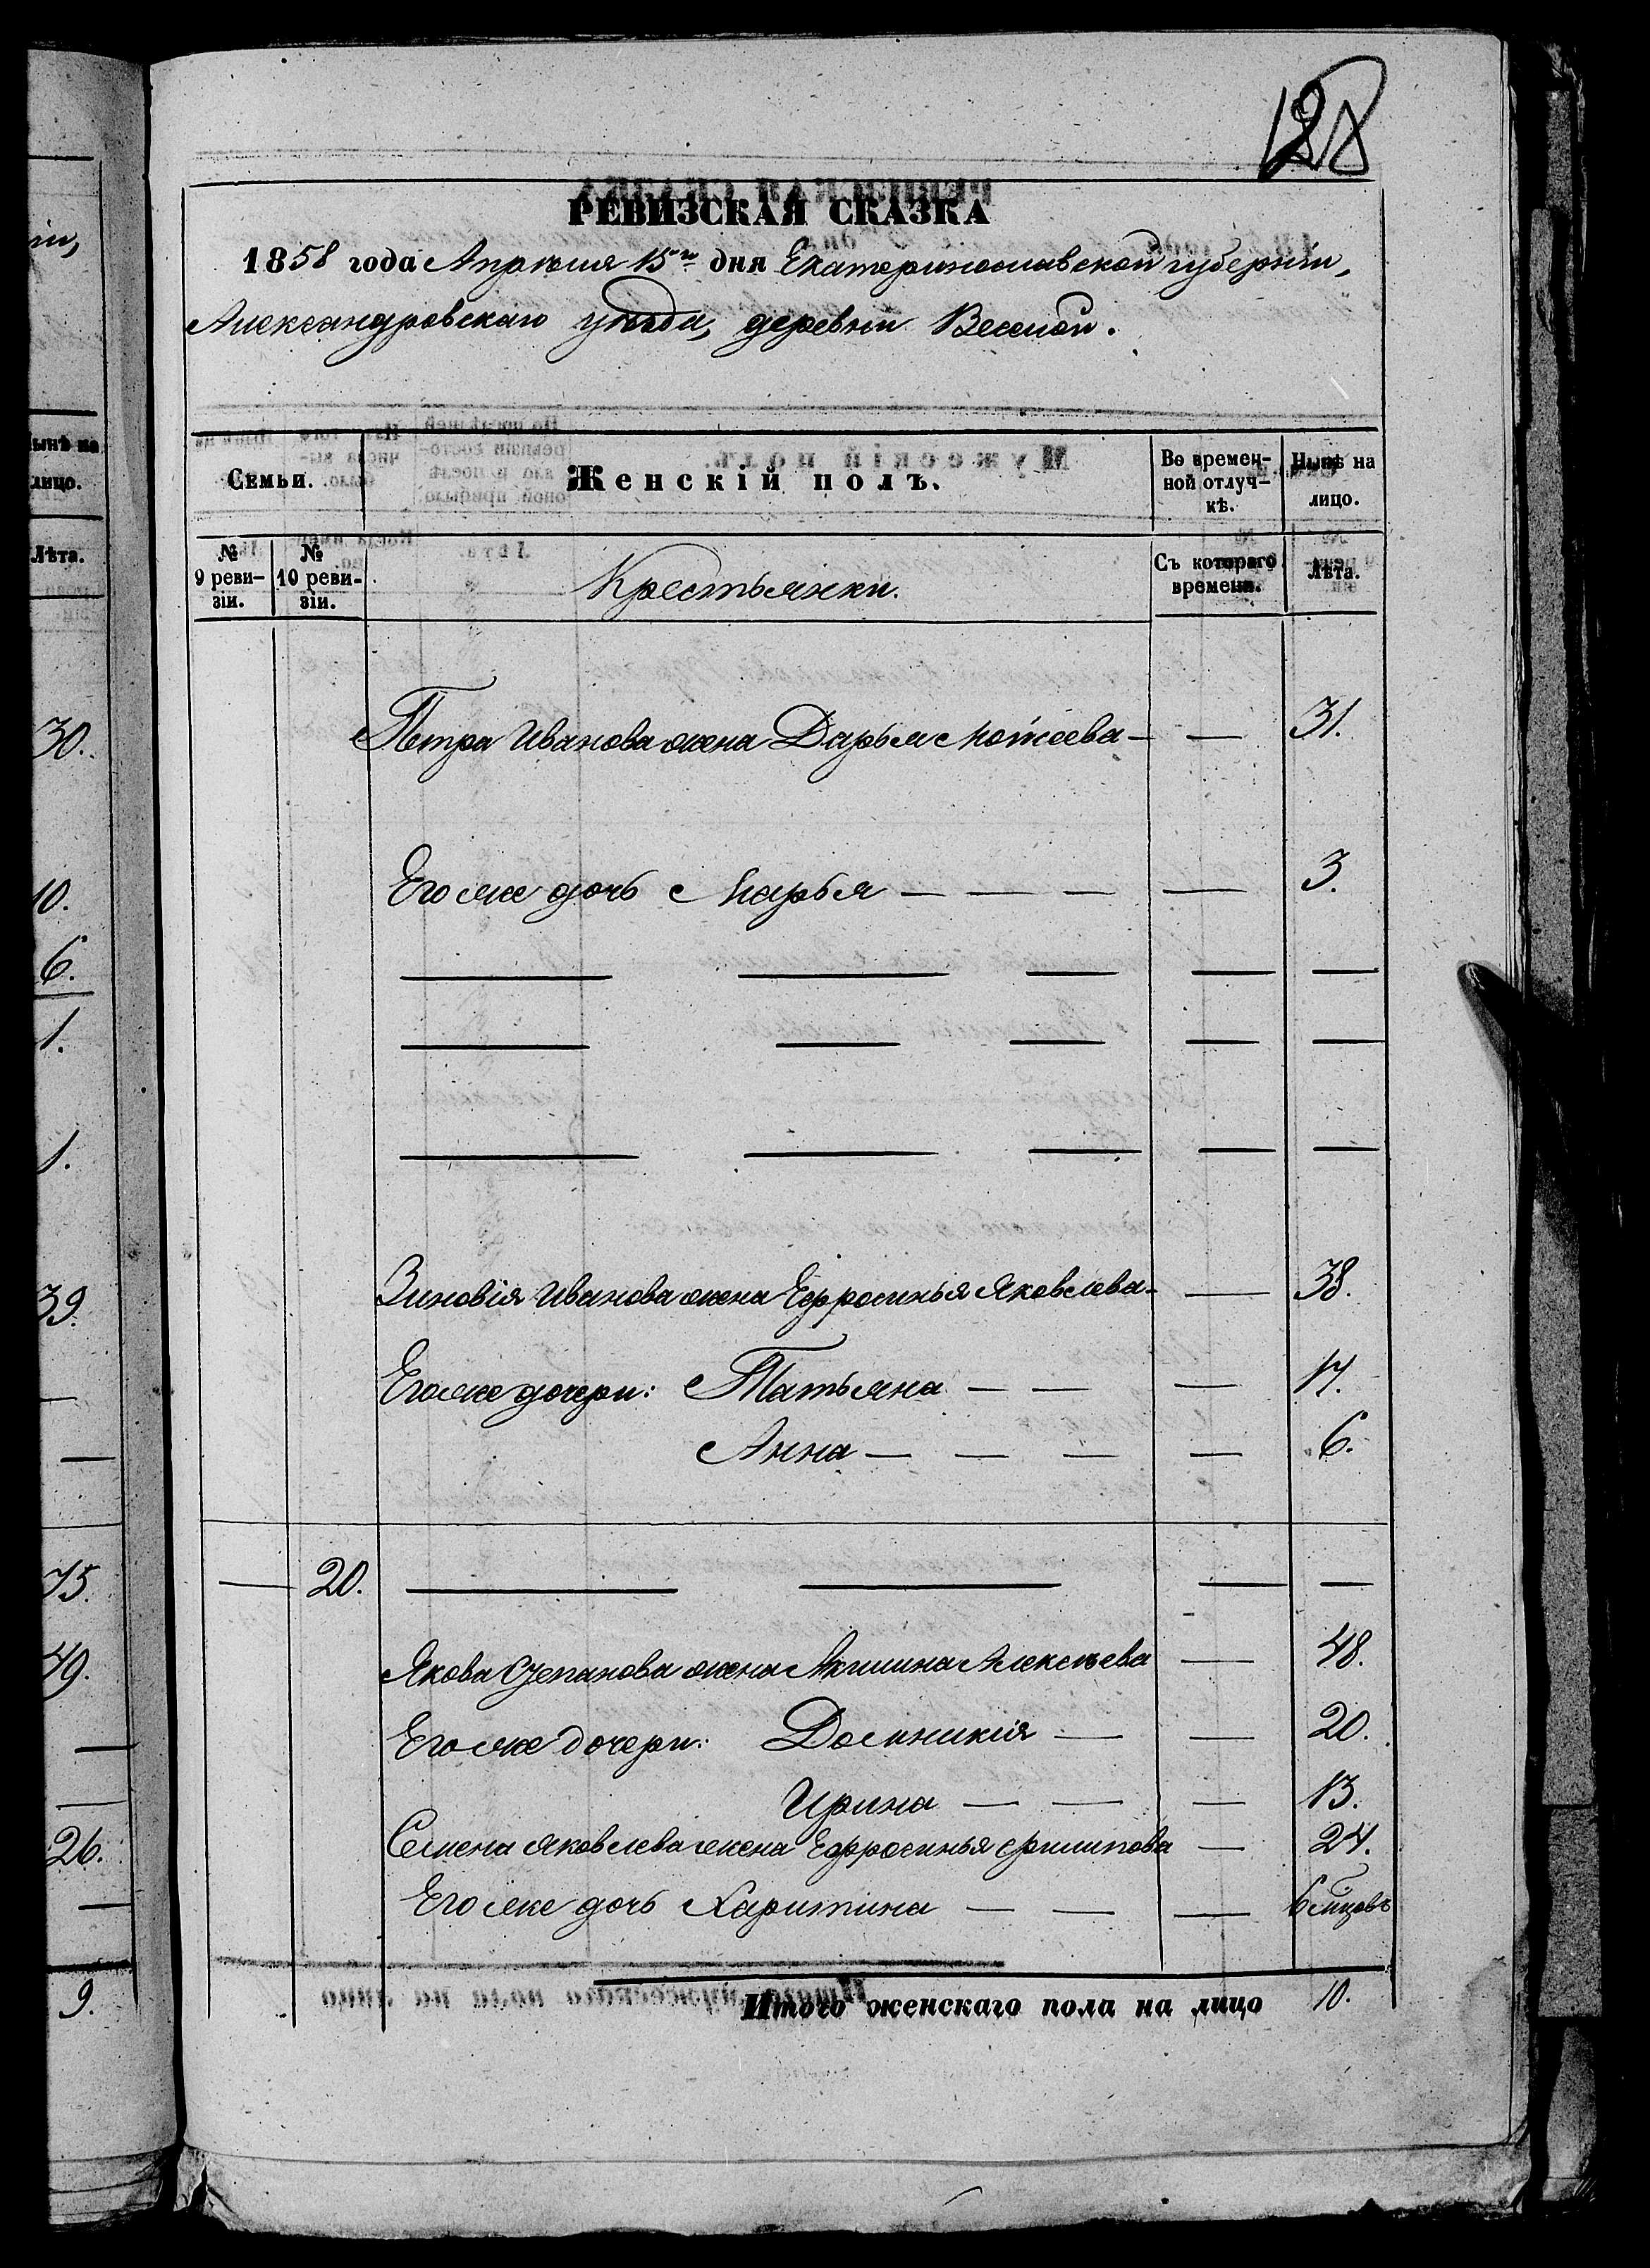 РЕВИЗСКАЯ СКАЗКА
1858 года Апрѣля 15го дня Екатеринославской губерніи,
Александровскаго уѣзда, деревни Веселой.
Семьи.
Женскій полъ.
Во времен-
ной отлуч-
кѣ.
Нынѣ на
лицо.
№
9 реви-
зіи.
№
10 реви-
зіи.
Крестьянки.
Съ котораго
времени.
Лѣта.
Петра Иванова жена Дарья Мотѳеева — — 31.
Его же дочь Марья — — — — 3.
— — — — —
— — — — —
— — — — —
Зиновія Иванова жена Ефросинья Яковлева — — 38.
Его же дочери: Татьяна — — — 17.
Анна — — — — 6.
— 20. — — — —
Якова Степанова жена Акилина Алексѣева — 48.
Его же дочери: Домникія — — 20.
Ирина — — — 13.
Семена Яковлева жена Ефросинья Филипова — 24.
Его же дочь Харитина — — — 6 мцовъ
Итого женскаго пола на лицо 10.
ніи,
Нынѣ на
лицо.
Лѣта.
30.
10.
6.
1.
1.
39.
—
—
75.
49.
—
—
26.
—
9.